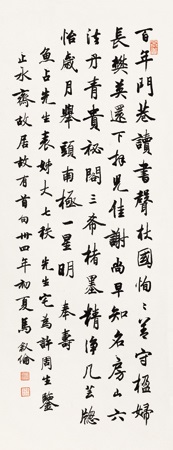 百年門巷讀書聲杖國怕〻善守楹婦
長樊英還下拜兒佳謝尚早知名房山六
法丹青貴秘閣三希楷墨精淨几芸牕
怡歲月舉頭南極一星明 奉壽
魚占先生表姊丈七秩 先生宅為許周生鑒
止水齋故居故有首句卅四年初夏馬敘倫